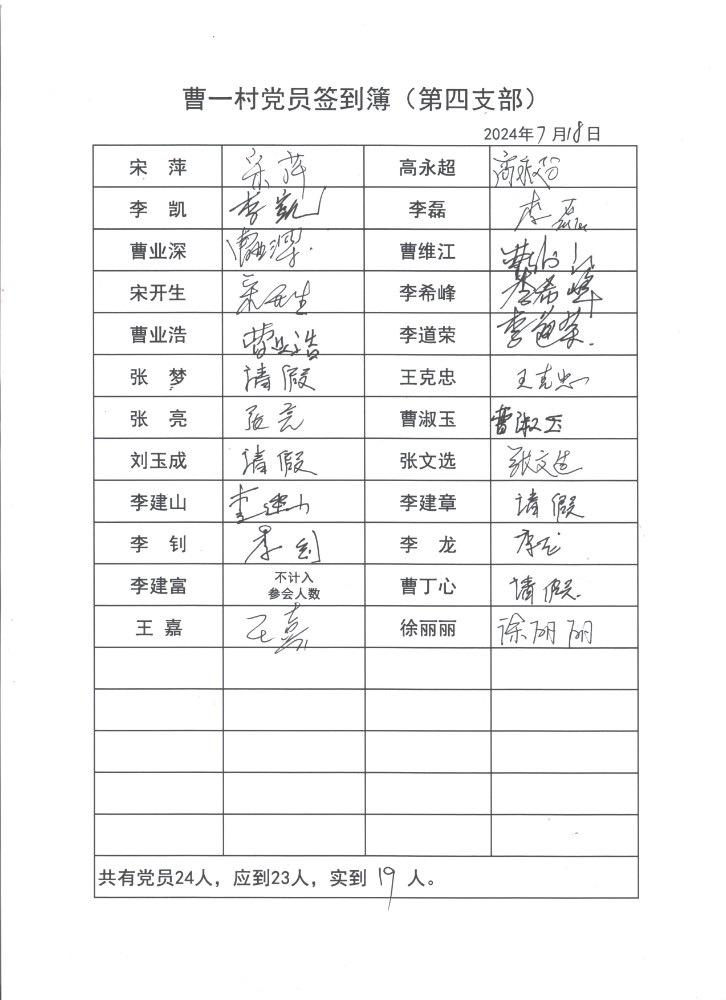 曹一村党员签到簿（第四支部）
2024年7月18日
宋 萍 宋萍 高永超 高永超
李 凯 李凯 李磊 李磊
曹业深 曹业深 曹维江 曹维江
宋开生 宋开生 李希峰 李希峰
曹业浩 曹业浩 李道荣 李道荣
张 梦 请假 王克忠 王克忠
张 亮 张亮 曹淑玉 曹淑玉
刘玉成 请假 张文选 张文选
李建山 李建山 李建章 请假
李 钊 李钊 李 龙 李龙
李建富 不计入 曹丁心 请假
参会人数
王 嘉 王嘉 徐丽丽 徐丽丽
共有党员24人，应到23人，实到 19 人。